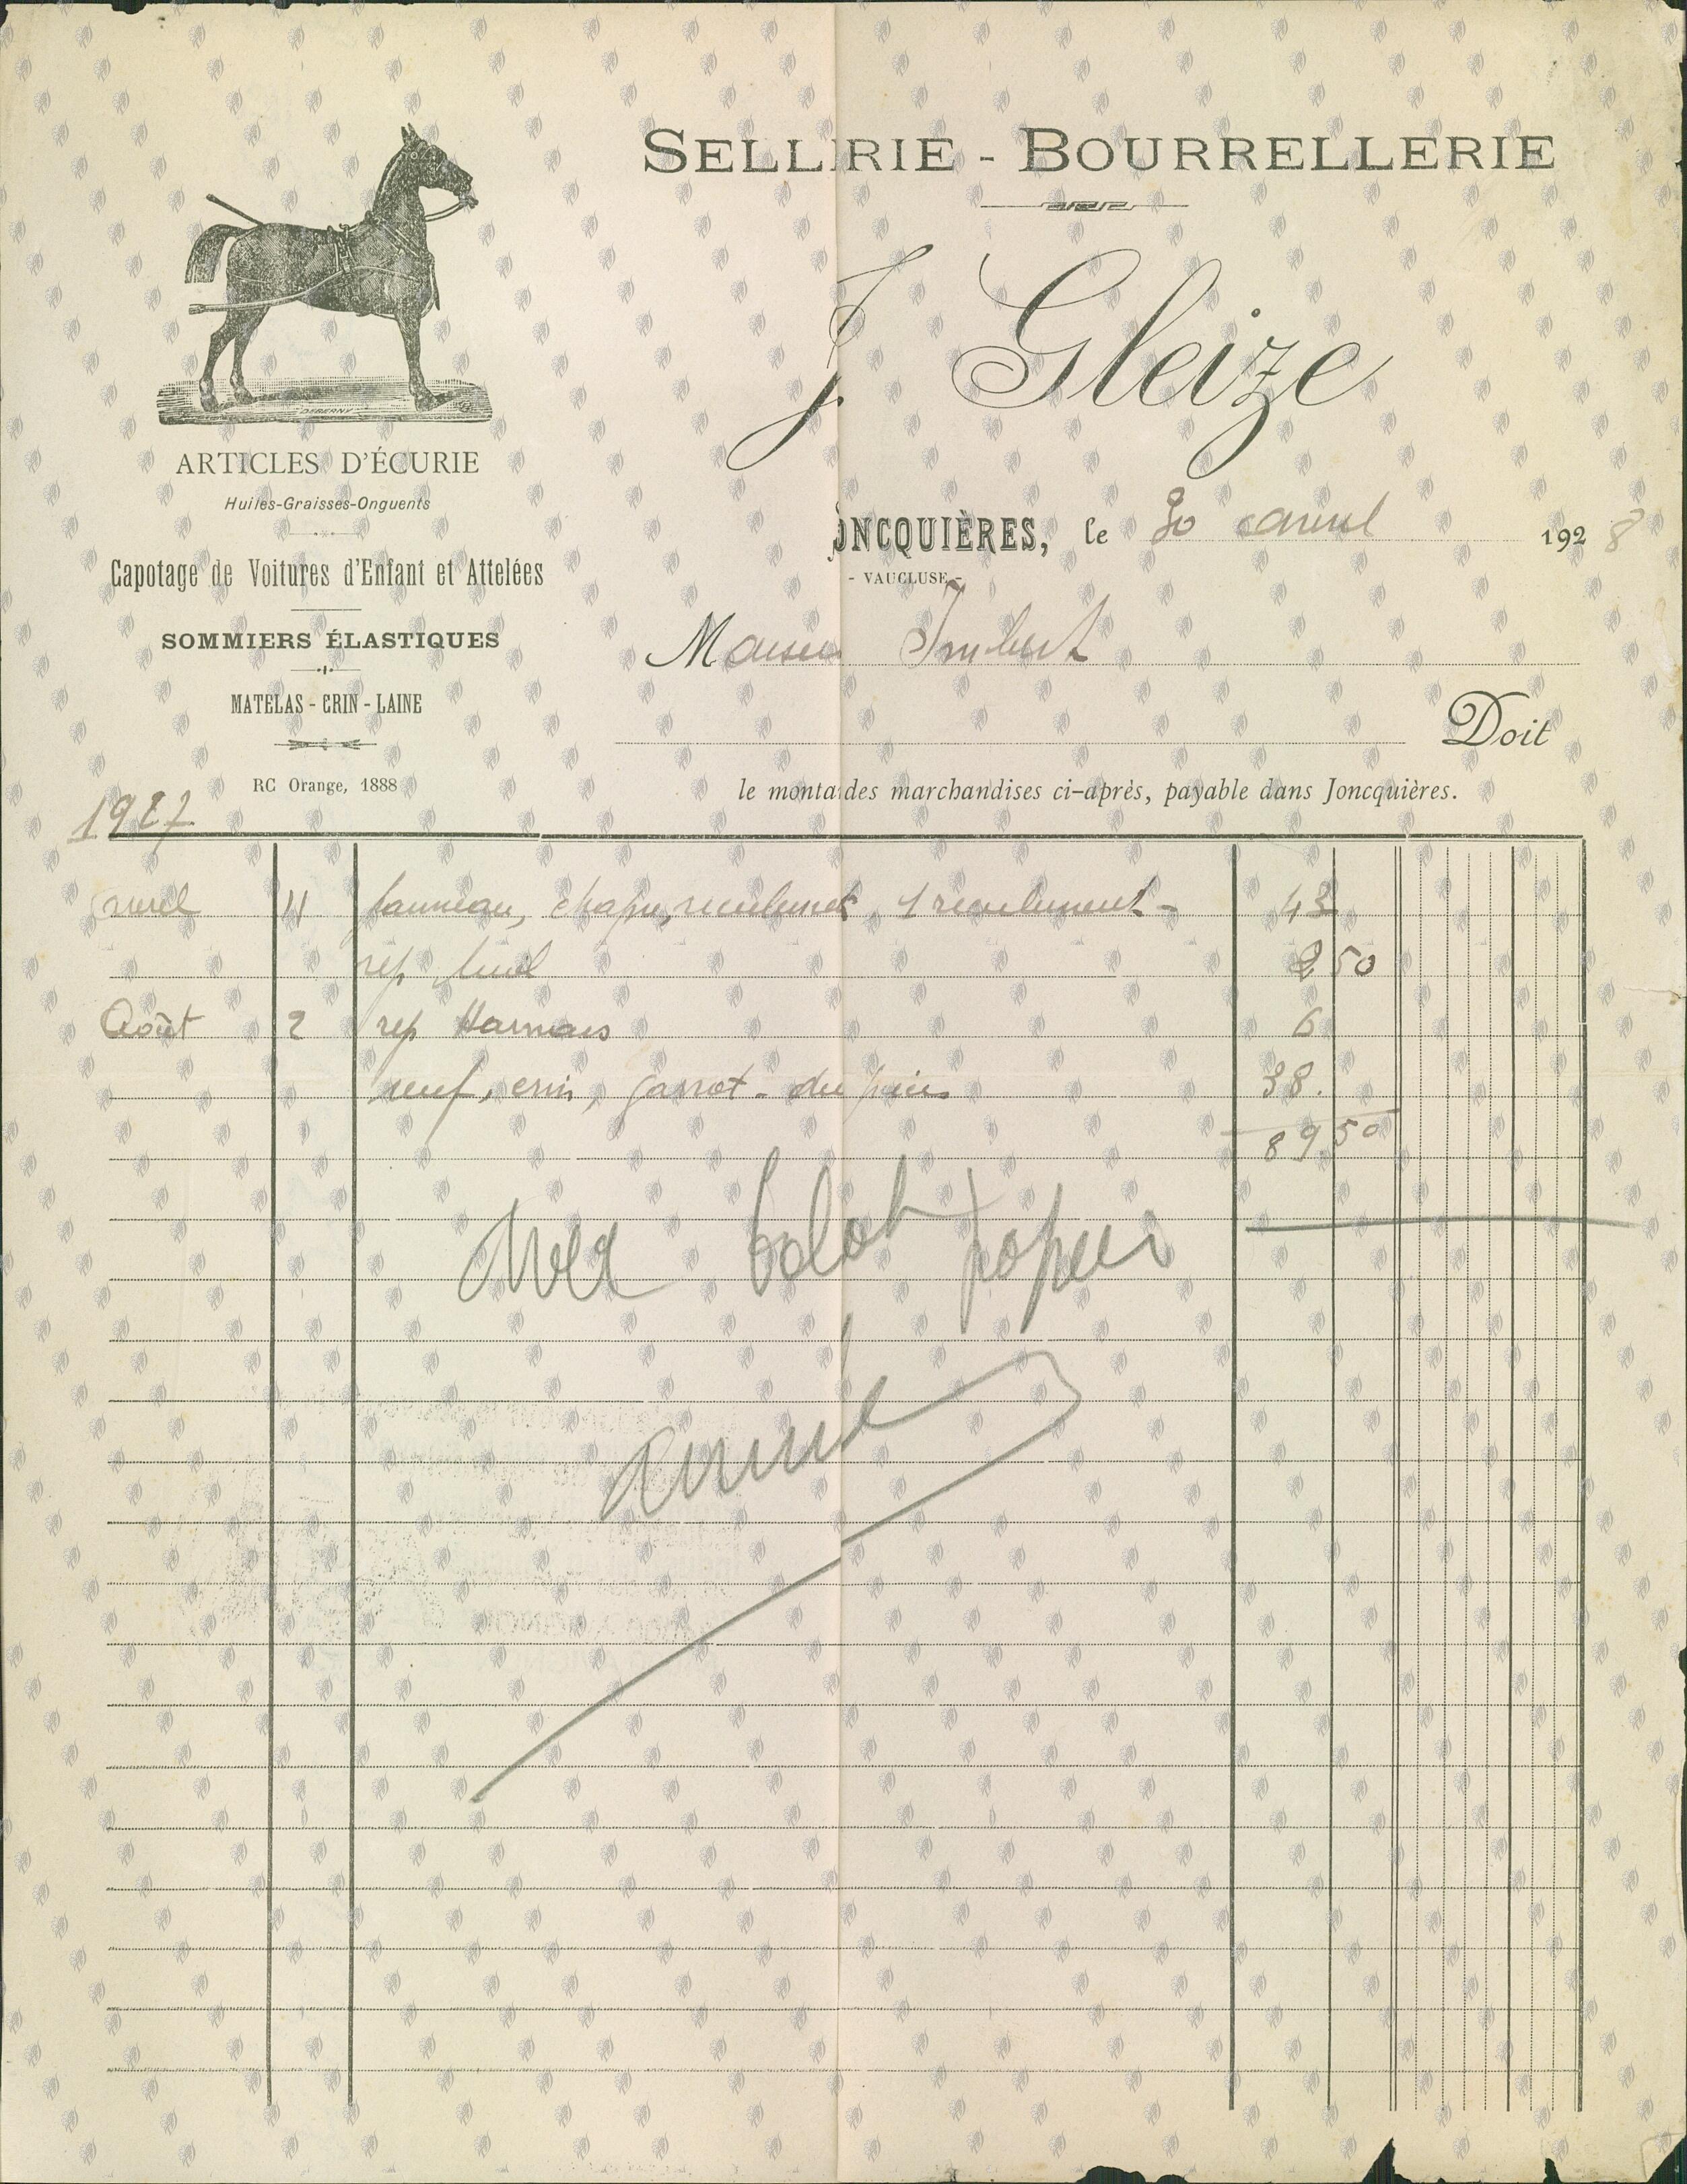 SELLERIE - BOURRELLERIE
J. Gleize
DEBERNY
ARTICLES D'ÉCURIE
Huiles-Graisses-Onguents
Capotage de Voitures d'Enfant et Attelées
SOMMIERS ÉLASTIQUES
MATELAS - CRIN - LAINE
RC Orange, 1888
ONCQUIÈRES, le 30 avril 1928
- VAUCLUSE -
Monsieur Imbert
Doit
le monta des marchandises ci-après, payable dans Joncquières.
1927
avril 11 panneau, chape, reculement, 1 reculement - 43
rep 2 50
Août 2 rep Harnais 6
neuf, crin, garrot - du 38.
89 50